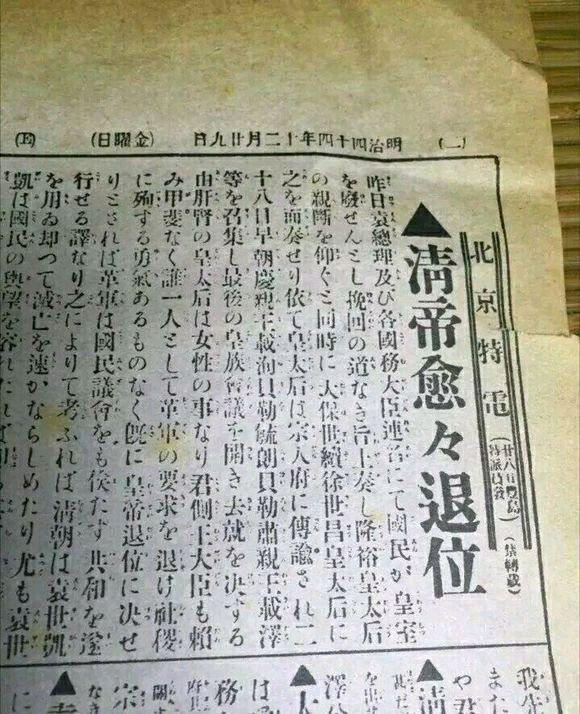 (二) 明治四十四年十二月廿九日 (金曜日)
北京特電
(廿八日豊島
特派員發)
(禁轉載)
▲清帝愈々退位
昨日袁總理及び各國務大臣連名にて國民が皇室
を廢せんとし挽回の道なき旨上奏し隆裕皇太后
の親斷を仰ぐと同時に大保世續徐世昌皇太后に
之を面奏せり依て皇太后は宗人府に傳諭され二
十八日早朝慶親王載洵貝勒毓朗貝勒肅親王載澤
等を召集し最後の皇族會議を開き去就を決する
由肝腎の皇太后は女性の事なり君側王大臣も賴
み甲斐なく誰一人として革軍の要求を退け社稷
に殉する勇氣あるものなく既に皇帝退位に決せ
りとされば革軍は國民議會をも俟たず共和を
行せる譯なり之によりて考ふれば清朝は袁世凱
を用ゐ却つて滅亡を速かならしめたり尤も袁世
凱は國民の輿望を容れたれば
また
や君
▲清
を出
澤公
▲大
は
務
宗
なき
▲
に